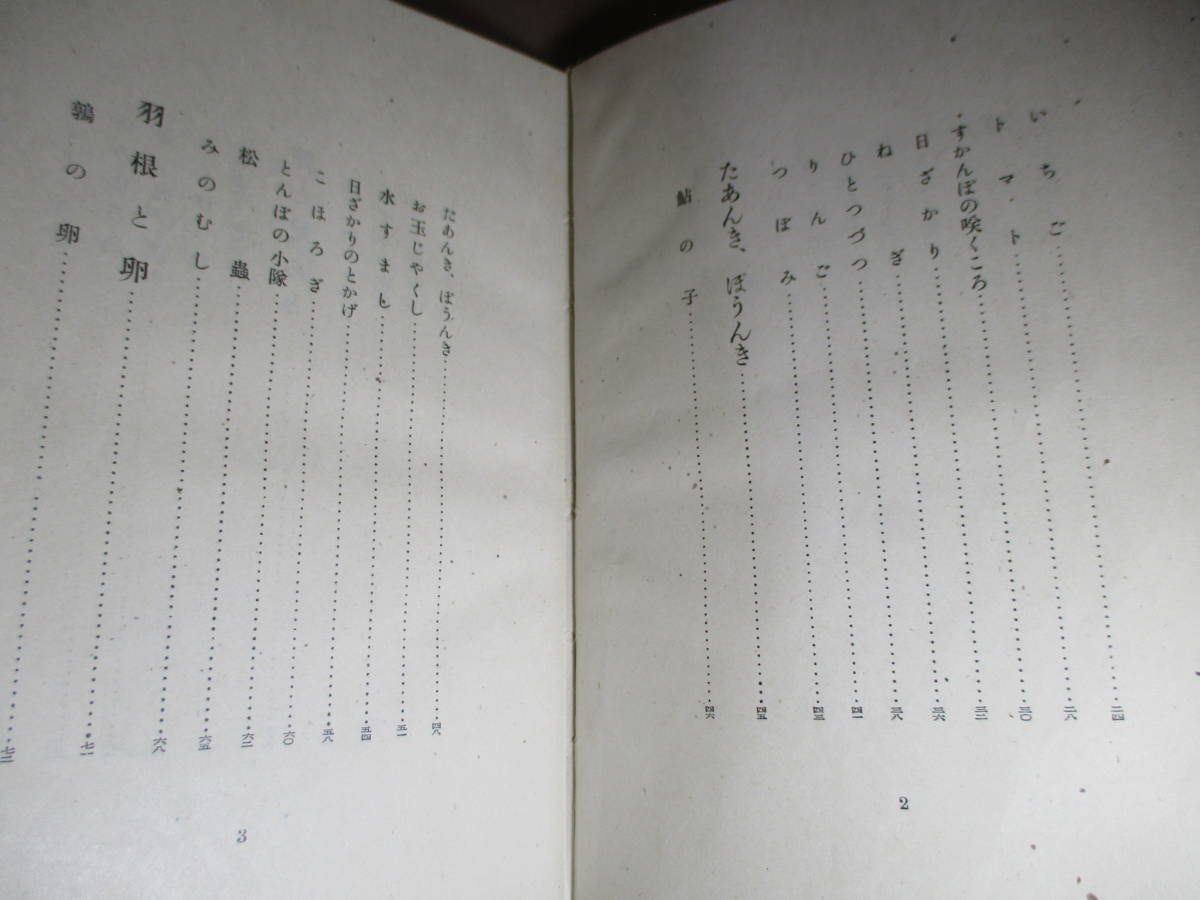 いちご‥‥‥‥‥‥‥‥二四
トマト‥‥‥‥‥‥‥‥二八
すかんぽの咲くころ‥‥‥‥‥‥‥‥三〇
日ざかり‥‥‥‥‥‥‥‥三二
ねぎ‥‥‥‥‥‥‥‥三六
ひとつづつ‥‥‥‥‥‥‥‥三八
りんご‥‥‥‥‥‥‥‥四一
つぼみ‥‥‥‥‥‥‥‥四三
たあんき、ぽうんき‥‥‥‥‥‥‥‥四五
鮎の子‥‥‥‥‥‥‥‥四六
2
たあんき、ぽうんき‥‥‥‥‥‥‥‥四八
お玉じやくし‥‥‥‥‥‥‥‥五一
水すまし‥‥‥‥‥‥‥‥五四
日ざかりのとかげ‥‥‥‥‥‥‥‥五八
こほろぎ‥‥‥‥‥‥‥‥六〇
とんぼの小隊‥‥‥‥‥‥‥‥六二
松蟲‥‥‥‥‥‥‥‥六五
みのむし‥‥‥‥‥‥‥‥六八
羽根と卵‥‥‥‥‥‥‥‥七一
鶉の卵‥‥‥‥‥‥‥‥七二
3